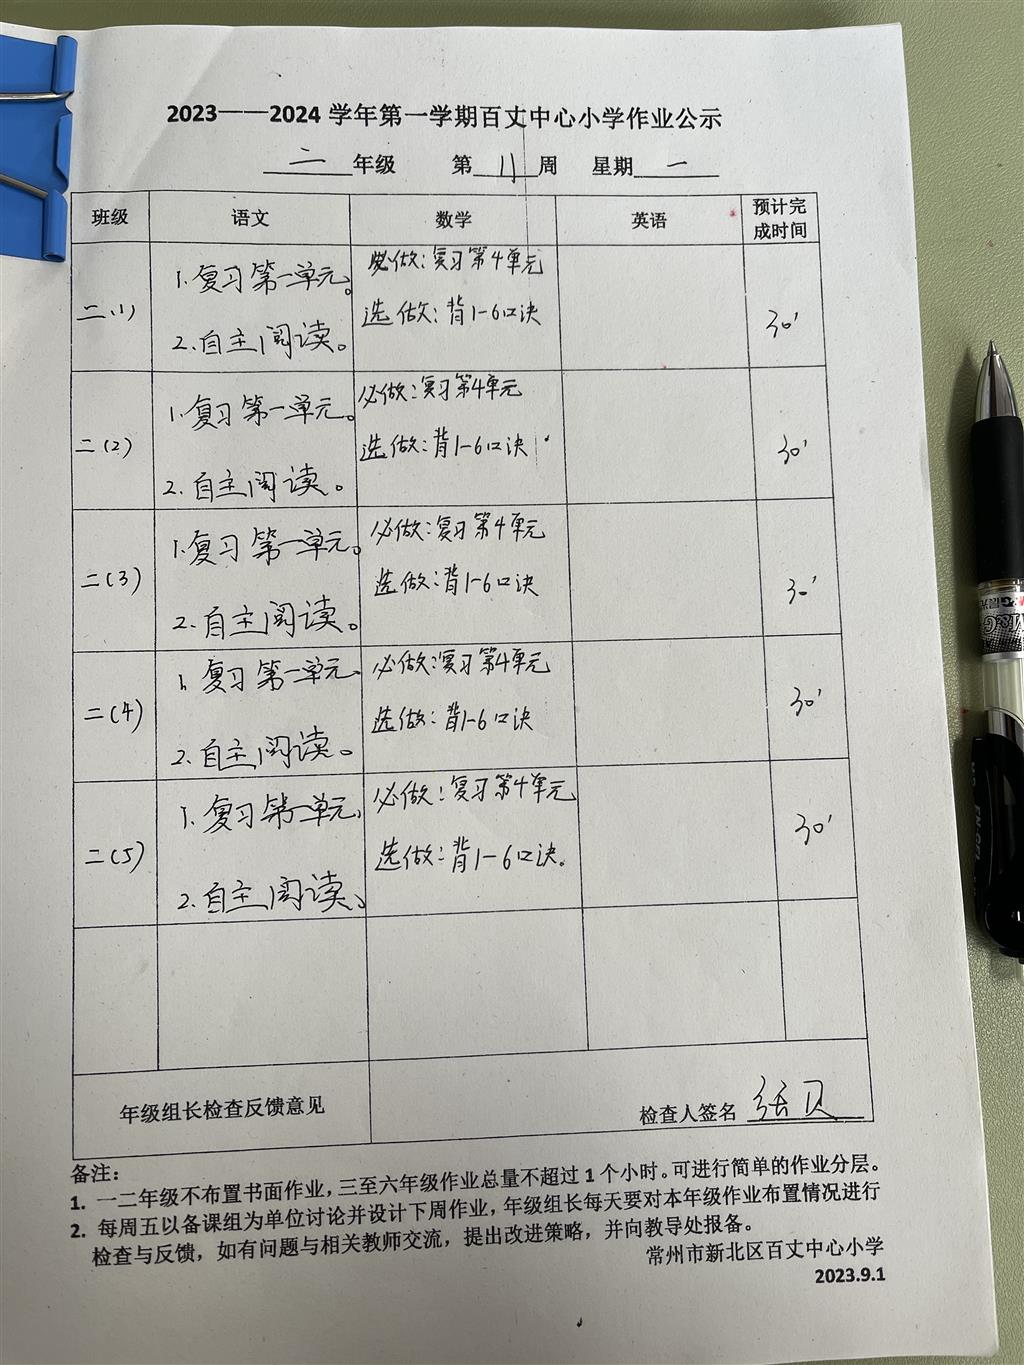 2023——2024 学年第一学期百丈中心小学作业公示
二 年级 第 11 周 星期 一
班级 语文 数学 英语 预计完成时间
二(1) 1.复习第一单元。 必做:复习第4单元 30'
2.自主阅读。 选做:背1-6口诀
二(2) 1.复习第一单元。 必做:复习第4单元 30'
2.自主阅读。 选做:背1-6口诀
二(3) 1.复习第一单元。 必做:复习第4单元 30'
2.自主阅读。 选做:背1-6口诀
二(4) 1.复习第一单元、 必做:复习第4单元 30'
2.自主阅读。 选做:背1-6口诀
二(5) 1.复习第一单元、 必做:复习第4单元 30'
2.自主阅读、 选做:背1-6口诀。
年级组长检查反馈意见 检查人签名
备注:
1. 一二年级不布置书面作业,三至六年级作业总量不超过 1 个小时。可进行简单的作业分层。
2. 每周五以备课组为单位讨论并设计下周作业,年级组长每天要对本年级作业布置情况进行
检查与反馈,如有问题与相关教师交流,提出改进策略,并向教导处报备。
常州市新北区百丈中心小学
2023.9.1
M&G